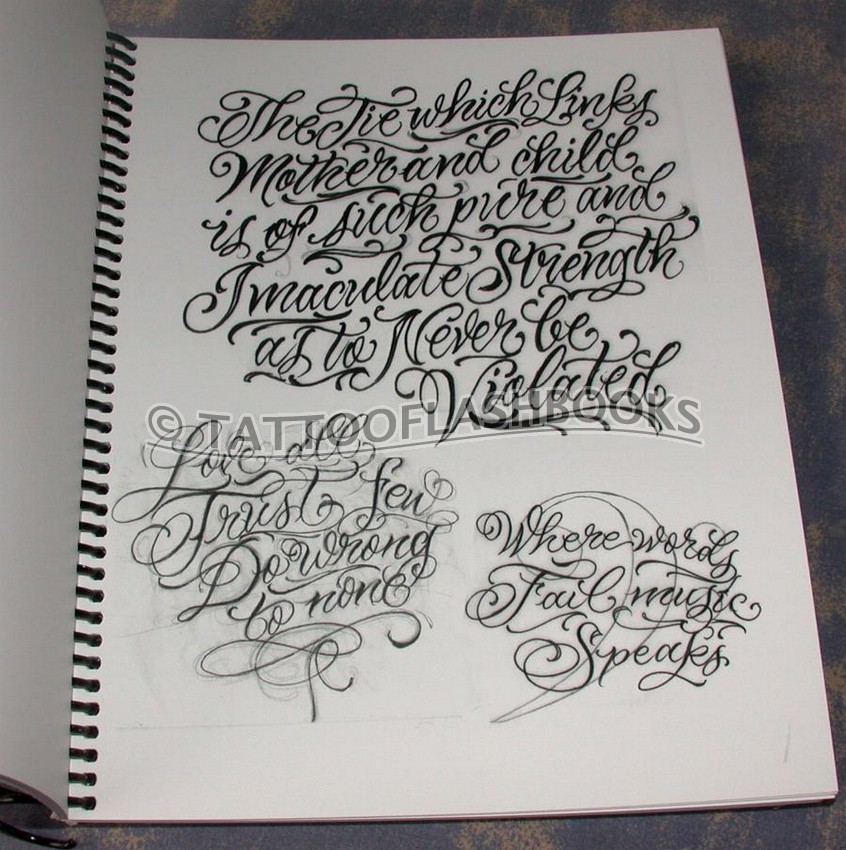 The Tie which Links
Mother and child
is of such pure and
Imaculate Strength
as to Never be
Violated
© TATTOOFLASHBOOKS
Love all
Trust few
Do wrong
to none
Where words
Fail music
Speaks